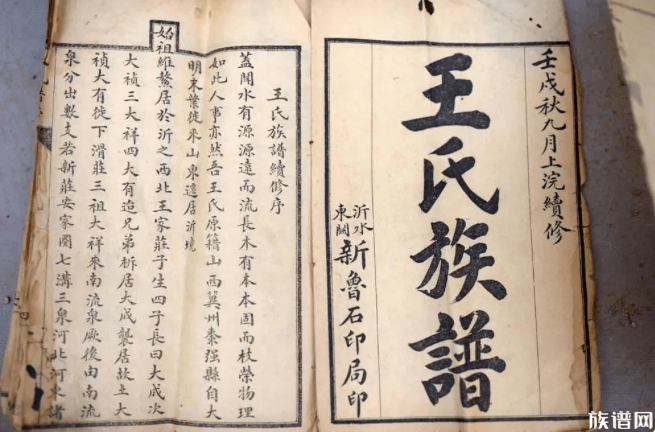 壬戌秋九月上浣續修
王氏族譜
沂水東關新魯石印局印
王氏族譜續修序
蓋聞水有源源遠而流長木有本本固而枝榮物理
如此人事亦然吾王氏原籍山西冀州棗强縣自大
明末葉徙來山東遷居沂境
始祖維鰲居於沂之西北王家莊子生四子長曰大成次
大禎三大祥四大有迨兄弟析居大成襲居故土大
禎大有徙下滑莊三祖大祥來南流泉厥後由南流
泉分出數支若新莊安家圈七溝三泉河北河東諸
族谱网